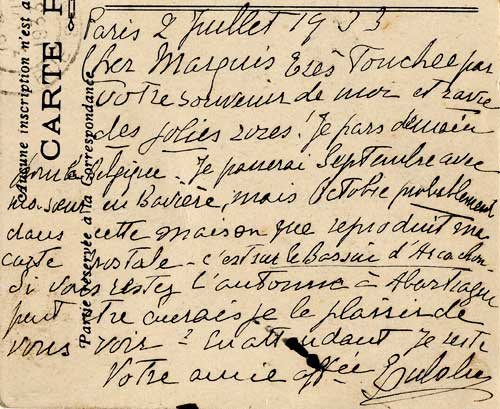 Aucune inscription n'est a
CARTE P
Partie réservée à la Correspondance
Paris 2 Juillet 1933
Cher Marquis Très Touchée par
Votre souvenir de moi et ravie
des jolies roses! Je pars demain
Belgique. Je passerai Septembre avec
ma sœur en Bavière, mais Octobre probablement
dans cette maison que reproduit ma
carte postale - c'est sur le Bassin d'Arcachon.
Si Vous restez l'automne à
peut être aurais je le plaisir de
vous voir? En attendant Je reste
Votre amie affée